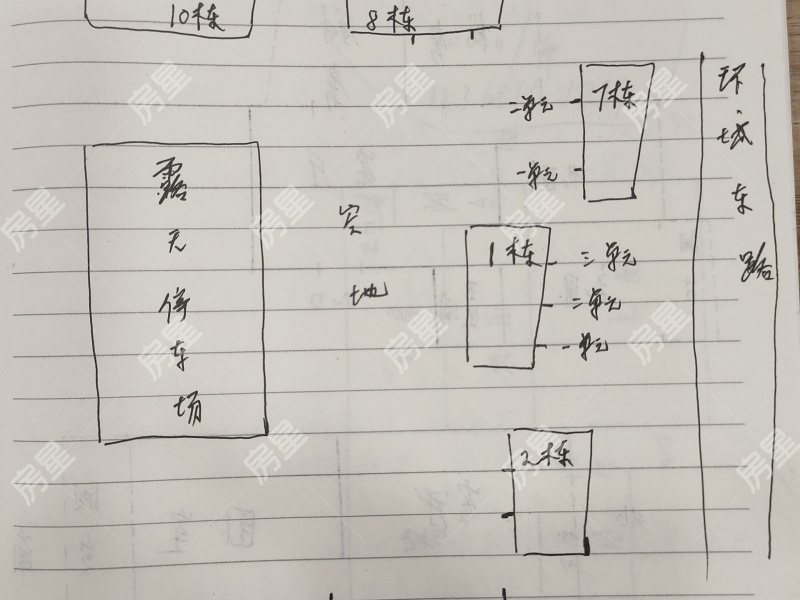 10栋
8栋
7栋
二单元
一单元
1栋
三单元
二单元
一单元
2栋
露
天
停
车
场
空
地
环
城
东
路
房星
房星
房星
房星
房星
房星
房星
房星
房星
房星
房星
房星